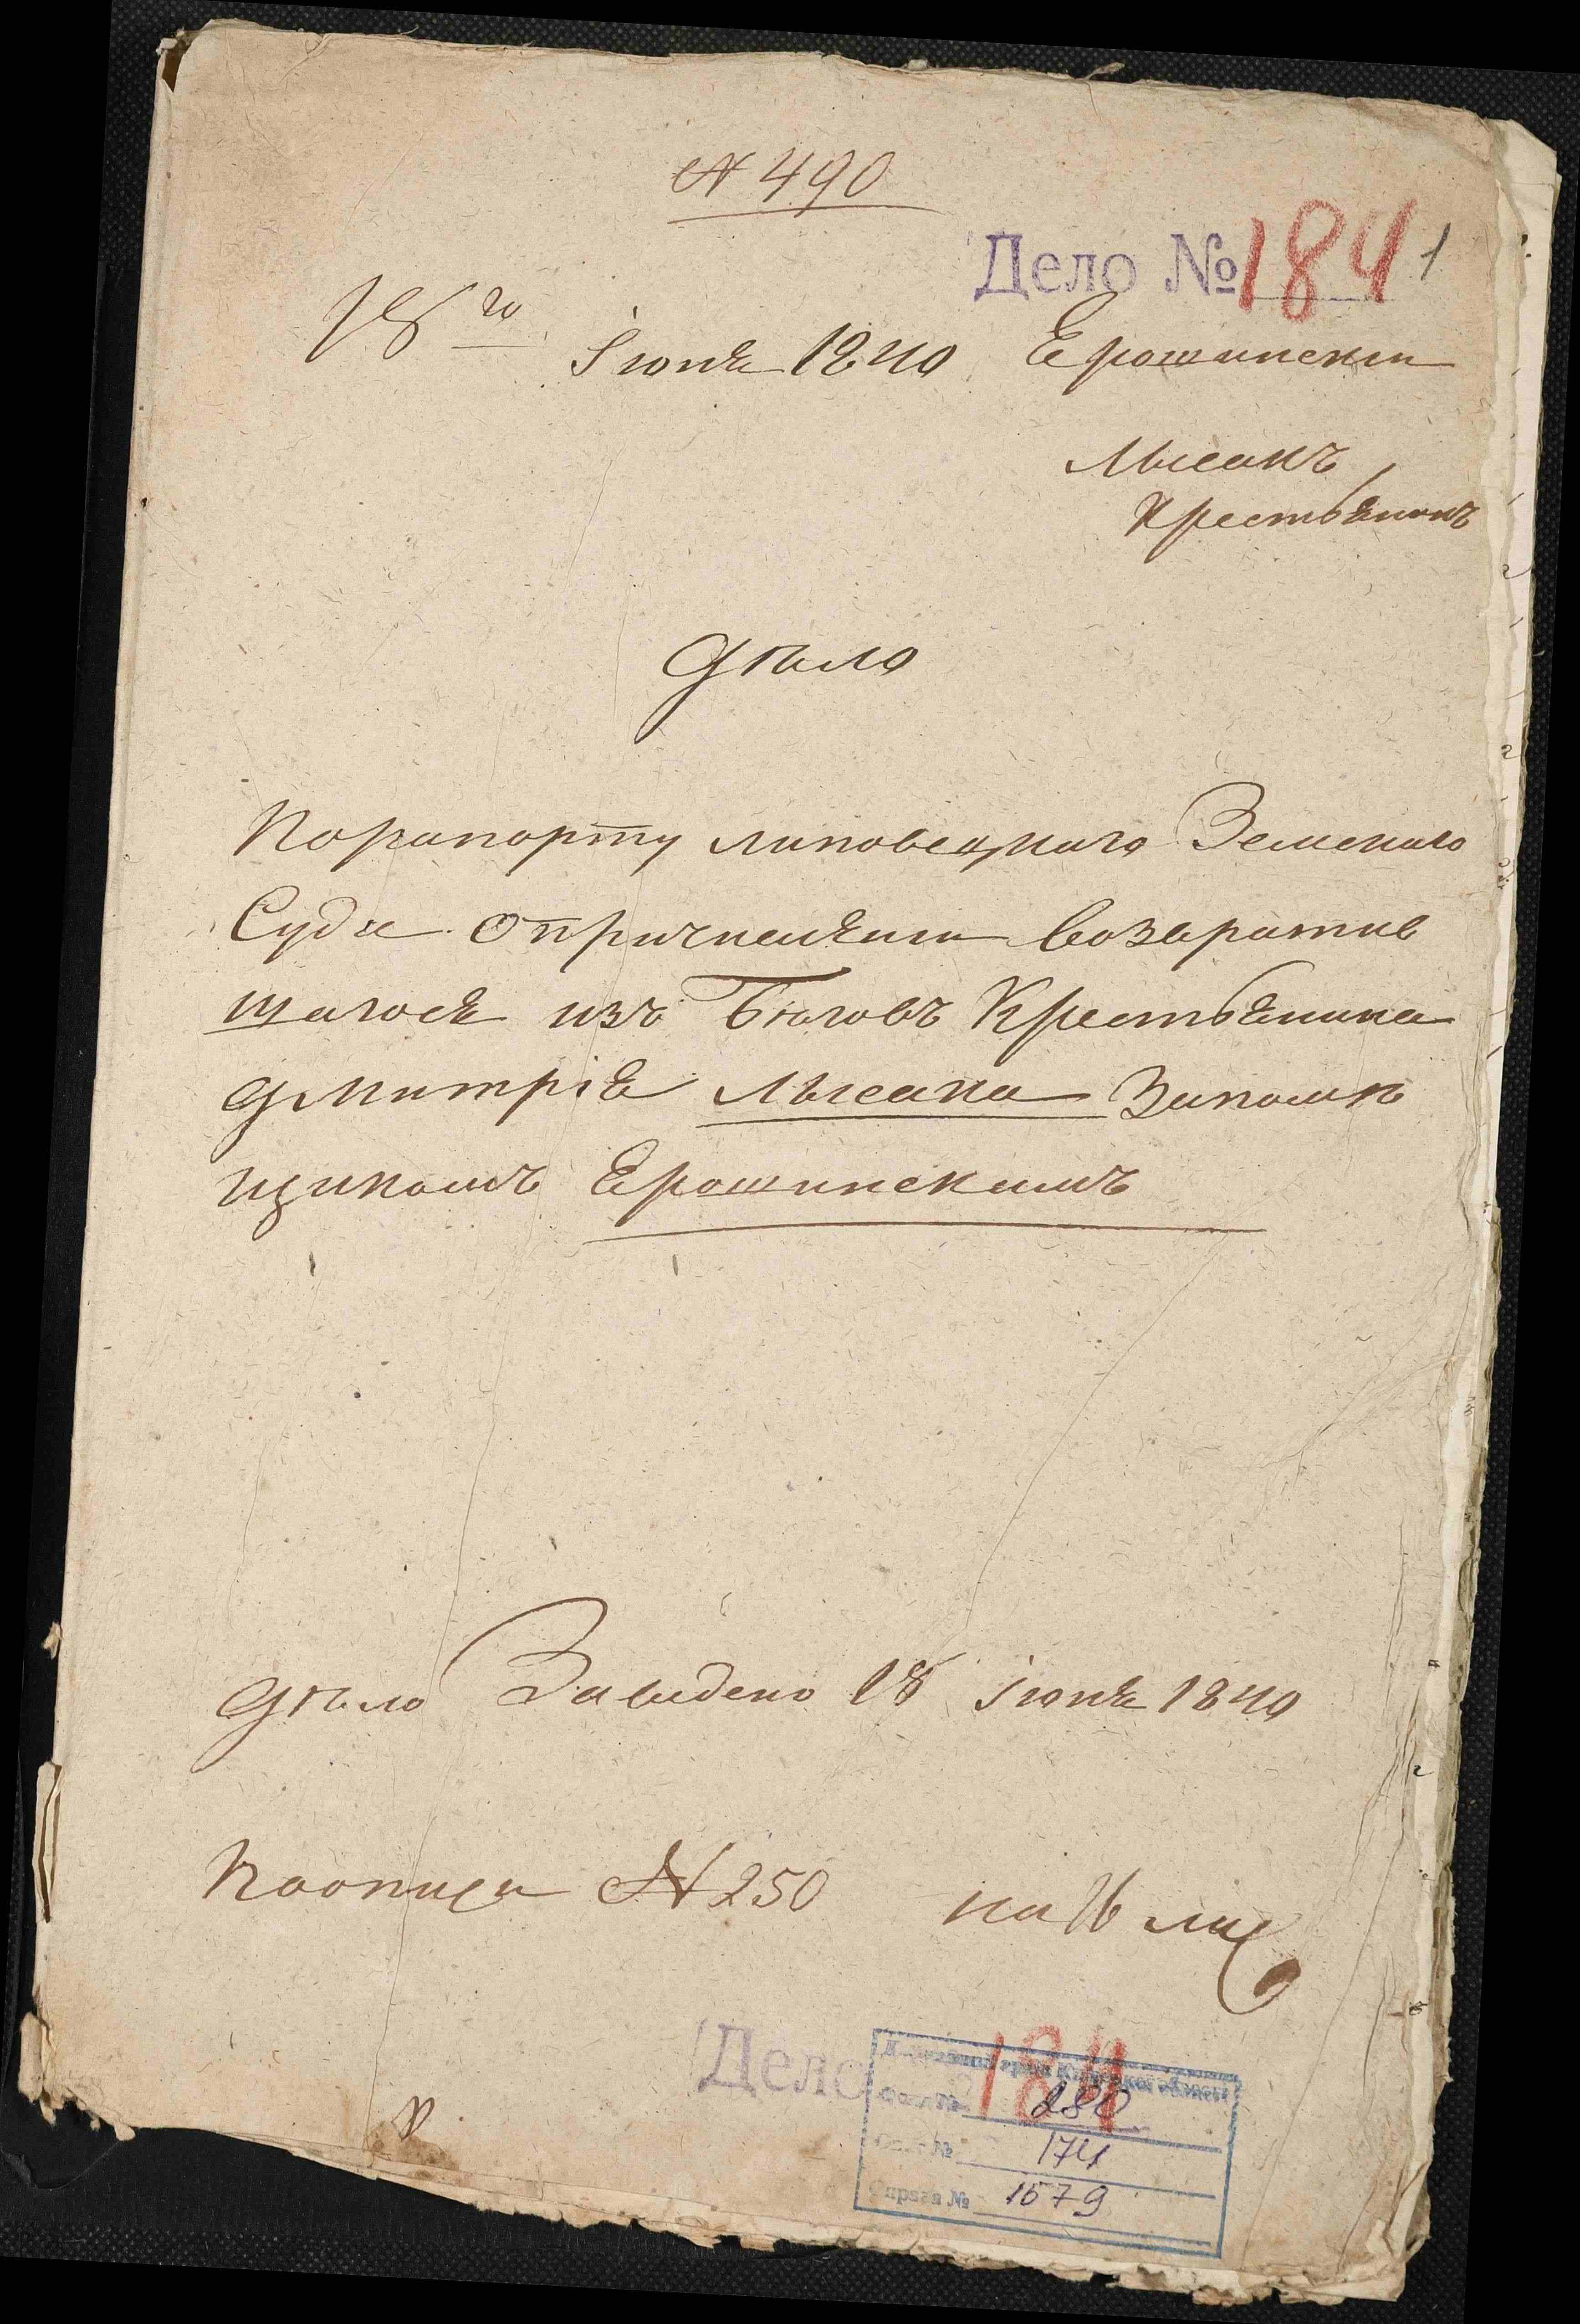 № 490
Дело № 184 1
18го Іюня 1840 Ерошински
Лысакъ
Крестьянинъ
Дѣло
Порапорту Липовецкаго Земскаго
Суда опричисленіи возвратив
шагося изъ Бѣговъ Крестьянина
Дмитрія Лысака Запомѣ
щикомъ Ерошинскимъ
Дѣло Заведено 18 Іюня 1840
Поописи № 250 на 16 лис
Дело 184
Державний архів Київської області
Фонд № 280
Опис № 174
Справа № 1579